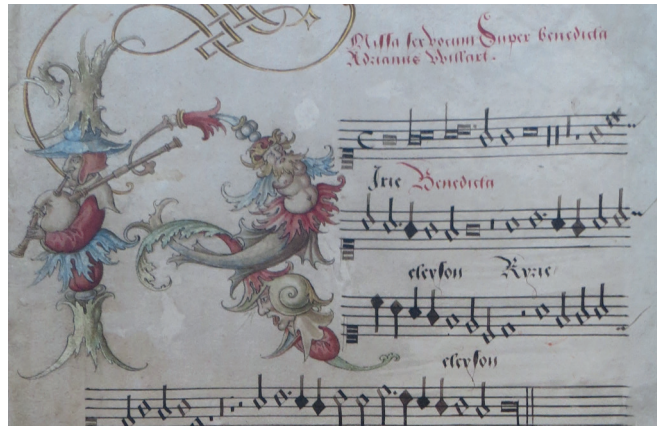 Missa sex vocum Super benedicta
Adrianus Willart.
Kirie Benedicta
eleyson Kyrie
eleyson